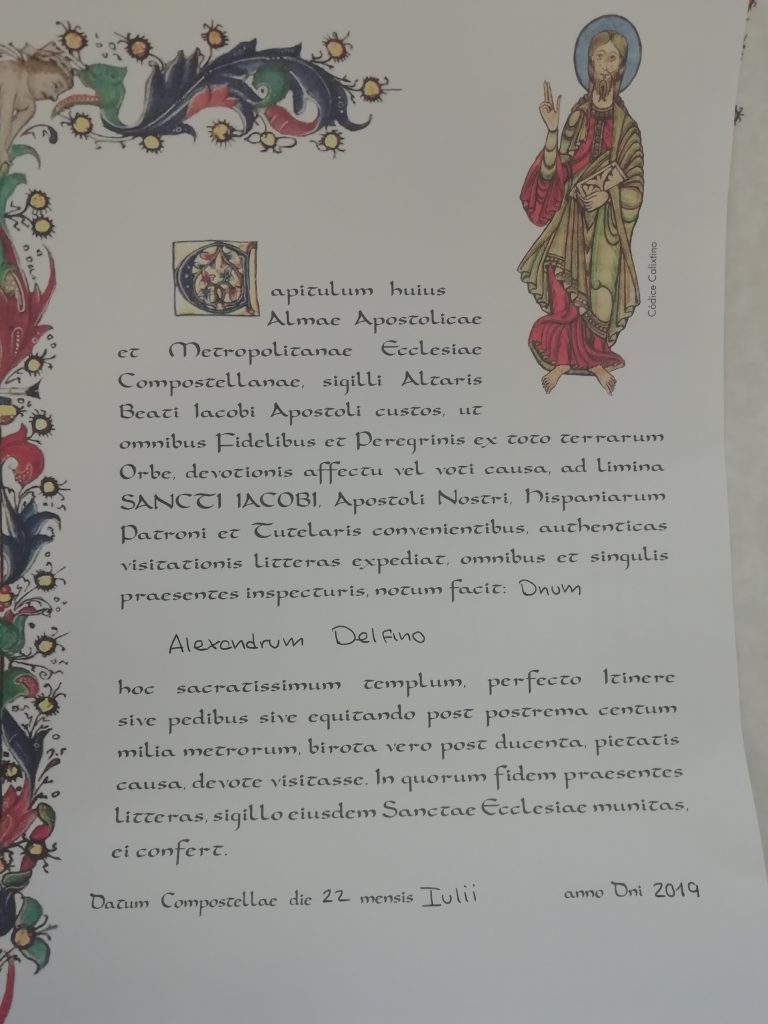 Capitulum huius
Almae Apostolicae
et Metropolitanae Ecclesiae
Compostellanae, sigilli Altaris
Beati Iacobi Apostoli custos, ut
omnibus Fidelibus et Peregrinis ex toto terrarum
Orbe, devotionis affectu vel voti causa, ad limina
SANCTI IACOBI, Apostoli Nostri, Hispaniarum
Patroni et Tutelaris convenientibus, authenticas
visitationis litteras expediat, omnibus et singulis
praesentes inspecturis, notum facit: Dnum
Alexandrum Delfino
hoc sacratissimum templum, perfecto Itinere
sive pedibus sive equitando post postrema centum
milia metrorum, birota vero post ducenta, pietatis
causa, devote visitasse. In quorum fidem praesentes
litteras, sigillo eiusdem Sanctae Ecclesiae munitas,
ei confert.
Datum Compostellae die 22 mensis Iulii anno Dni 2019
Códice Calixtino